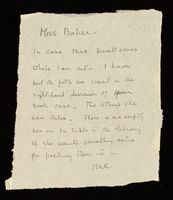 Miss Baker.
In case Mrs Burell comes
while I am out. I have
put the pots we want in the
right hand division of your
book case. The others she
can take. There is an empty
box on the table in the library
if she wants something extra
for packing them in —